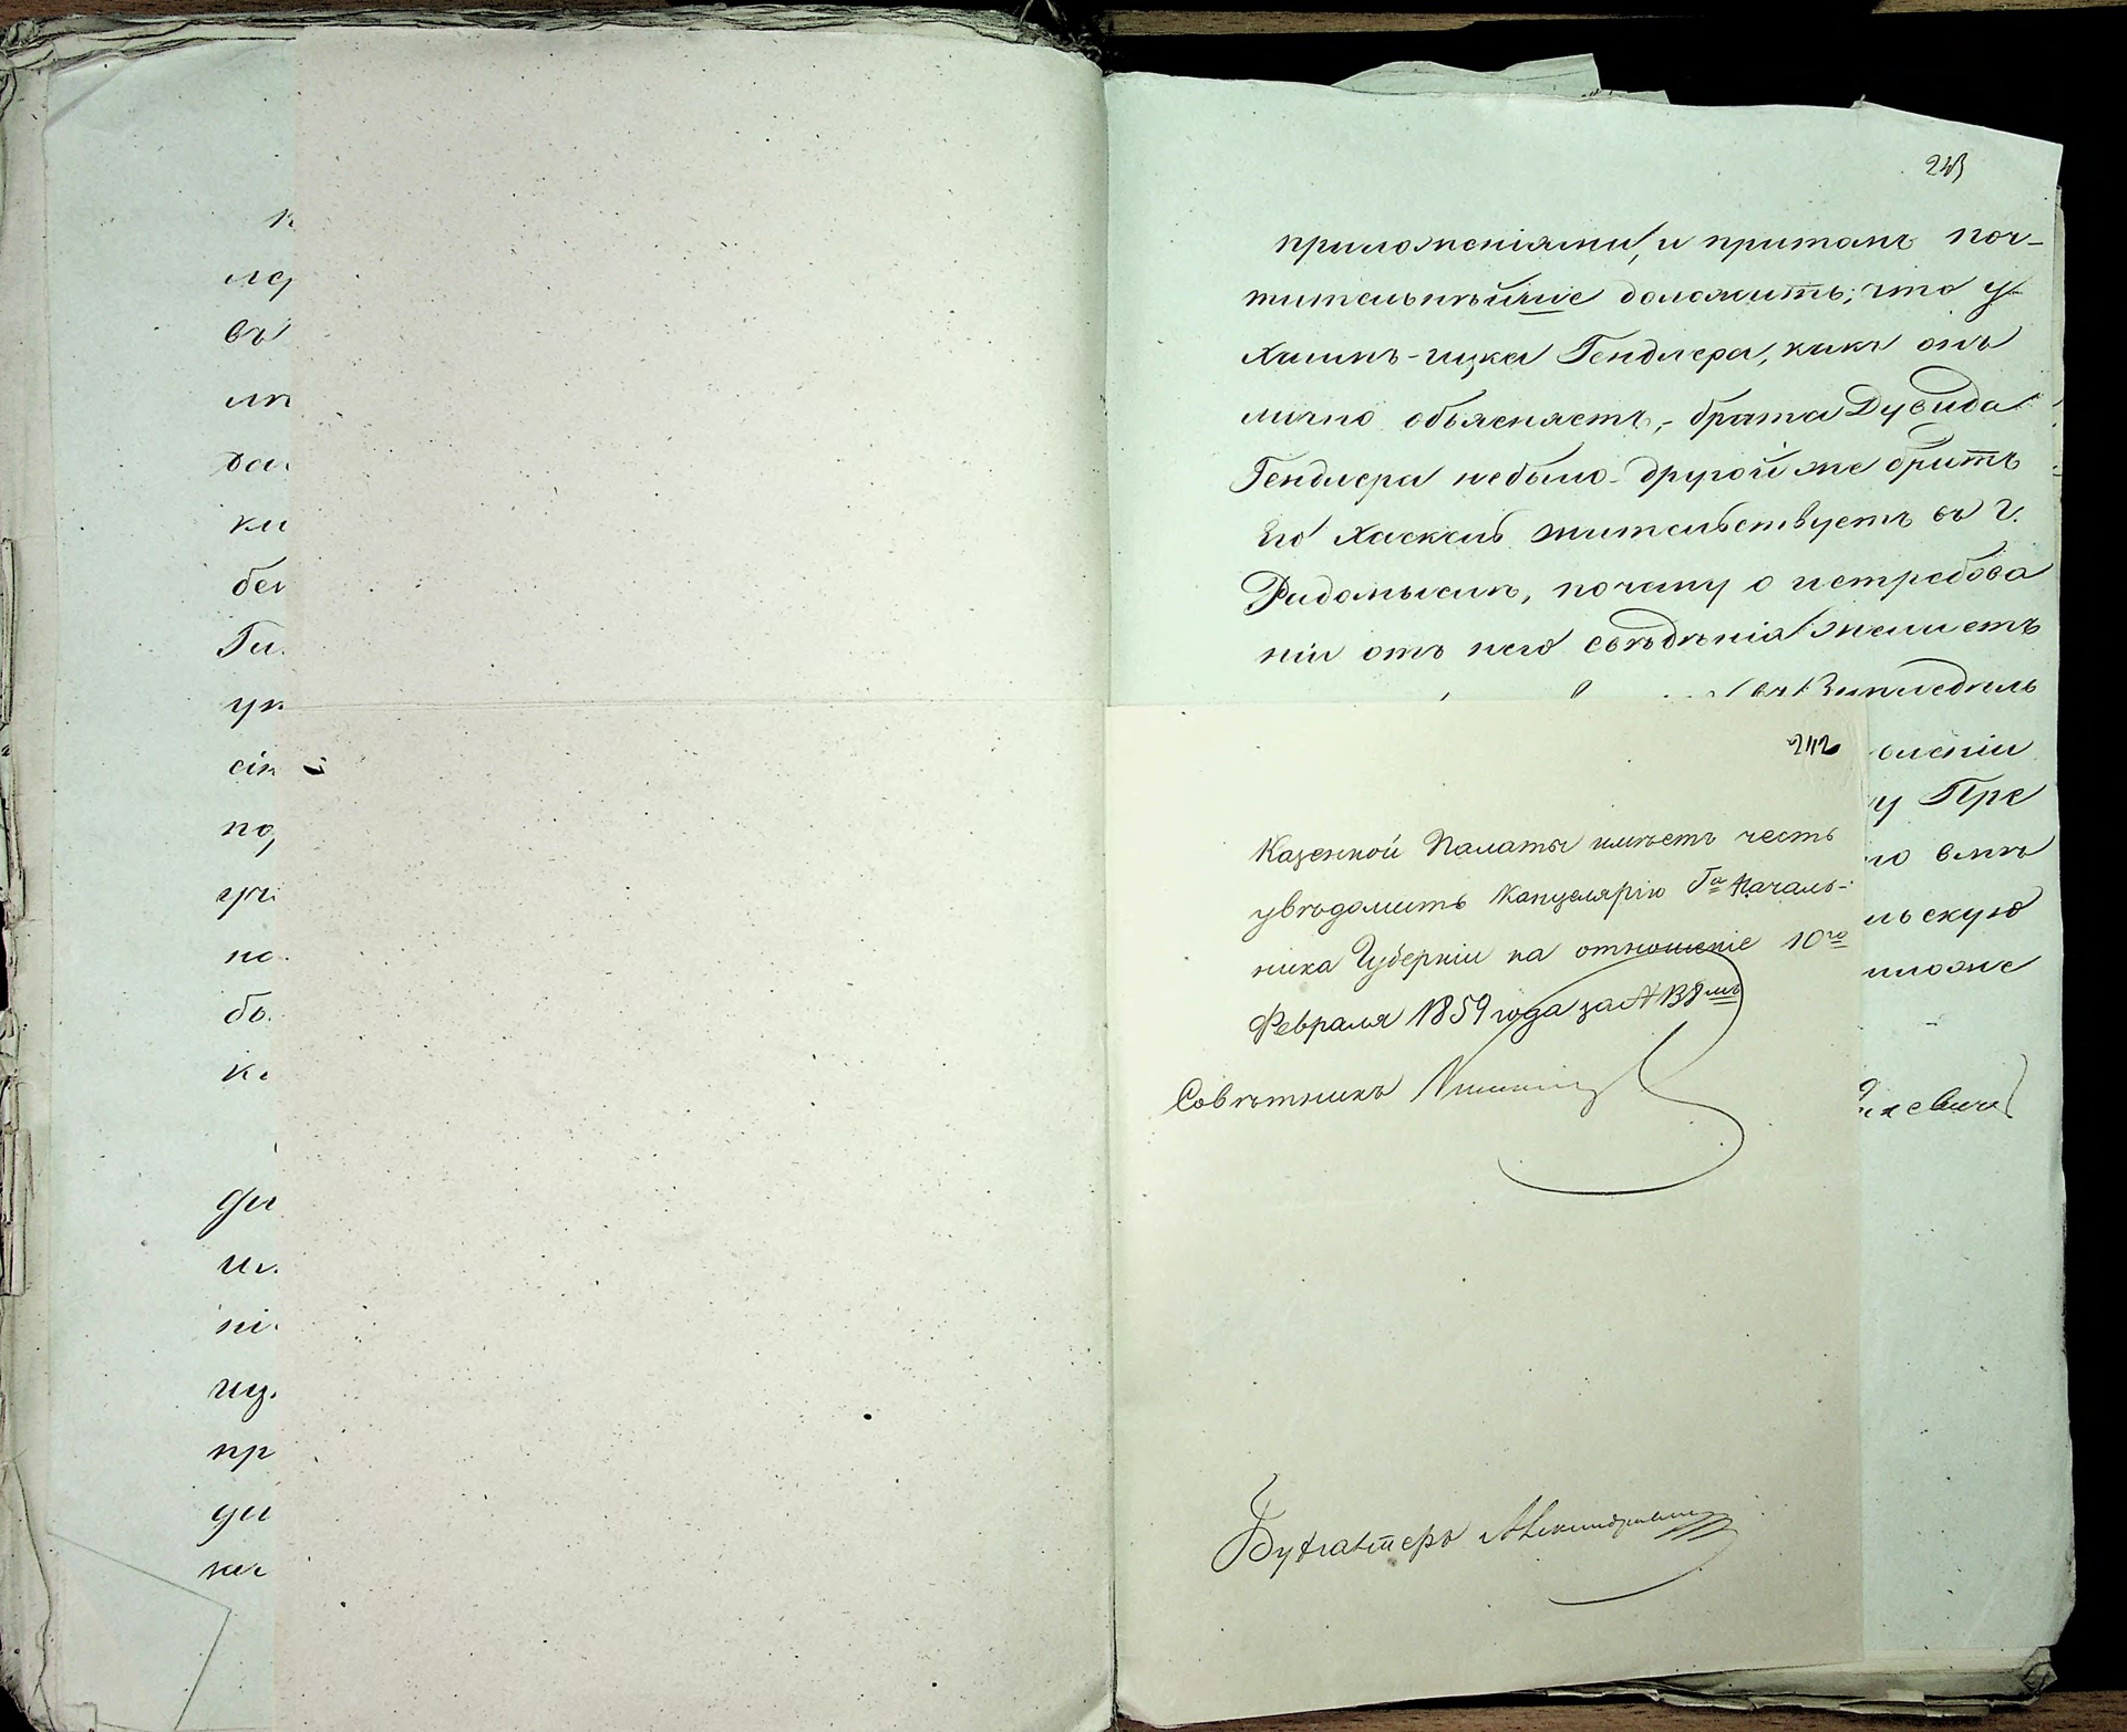 к
лу
въ
ли
дол
ки
бег
Ги
ук
сік
по
гра
но
бы
ка
ди
ил
ні
иц
пр
ди
на
243
приложеніями, и притомъ поч-
тительнѣйше доложить; что у
Хаимъ-ицка Гендлера, какъ онъ
лично объясняетъ, - брата Дувида
Гендлера небыло - другой же братъ
Его Хаскель жительствуетъ въ г.
Радомыслѣ, почему о истребова
ніи отъ него свѣдѣнія
оленіи
у Пре
го вмѣ
льскую
иложе
242
Казенной Палаты имѣетъ честь
увѣдомить Канцелярію Гна Началь-
ника Губерніи на отношеніе 10го
Февраля 1859 года за № 138мъ
Совѣтникъ
Бухгалтеръ